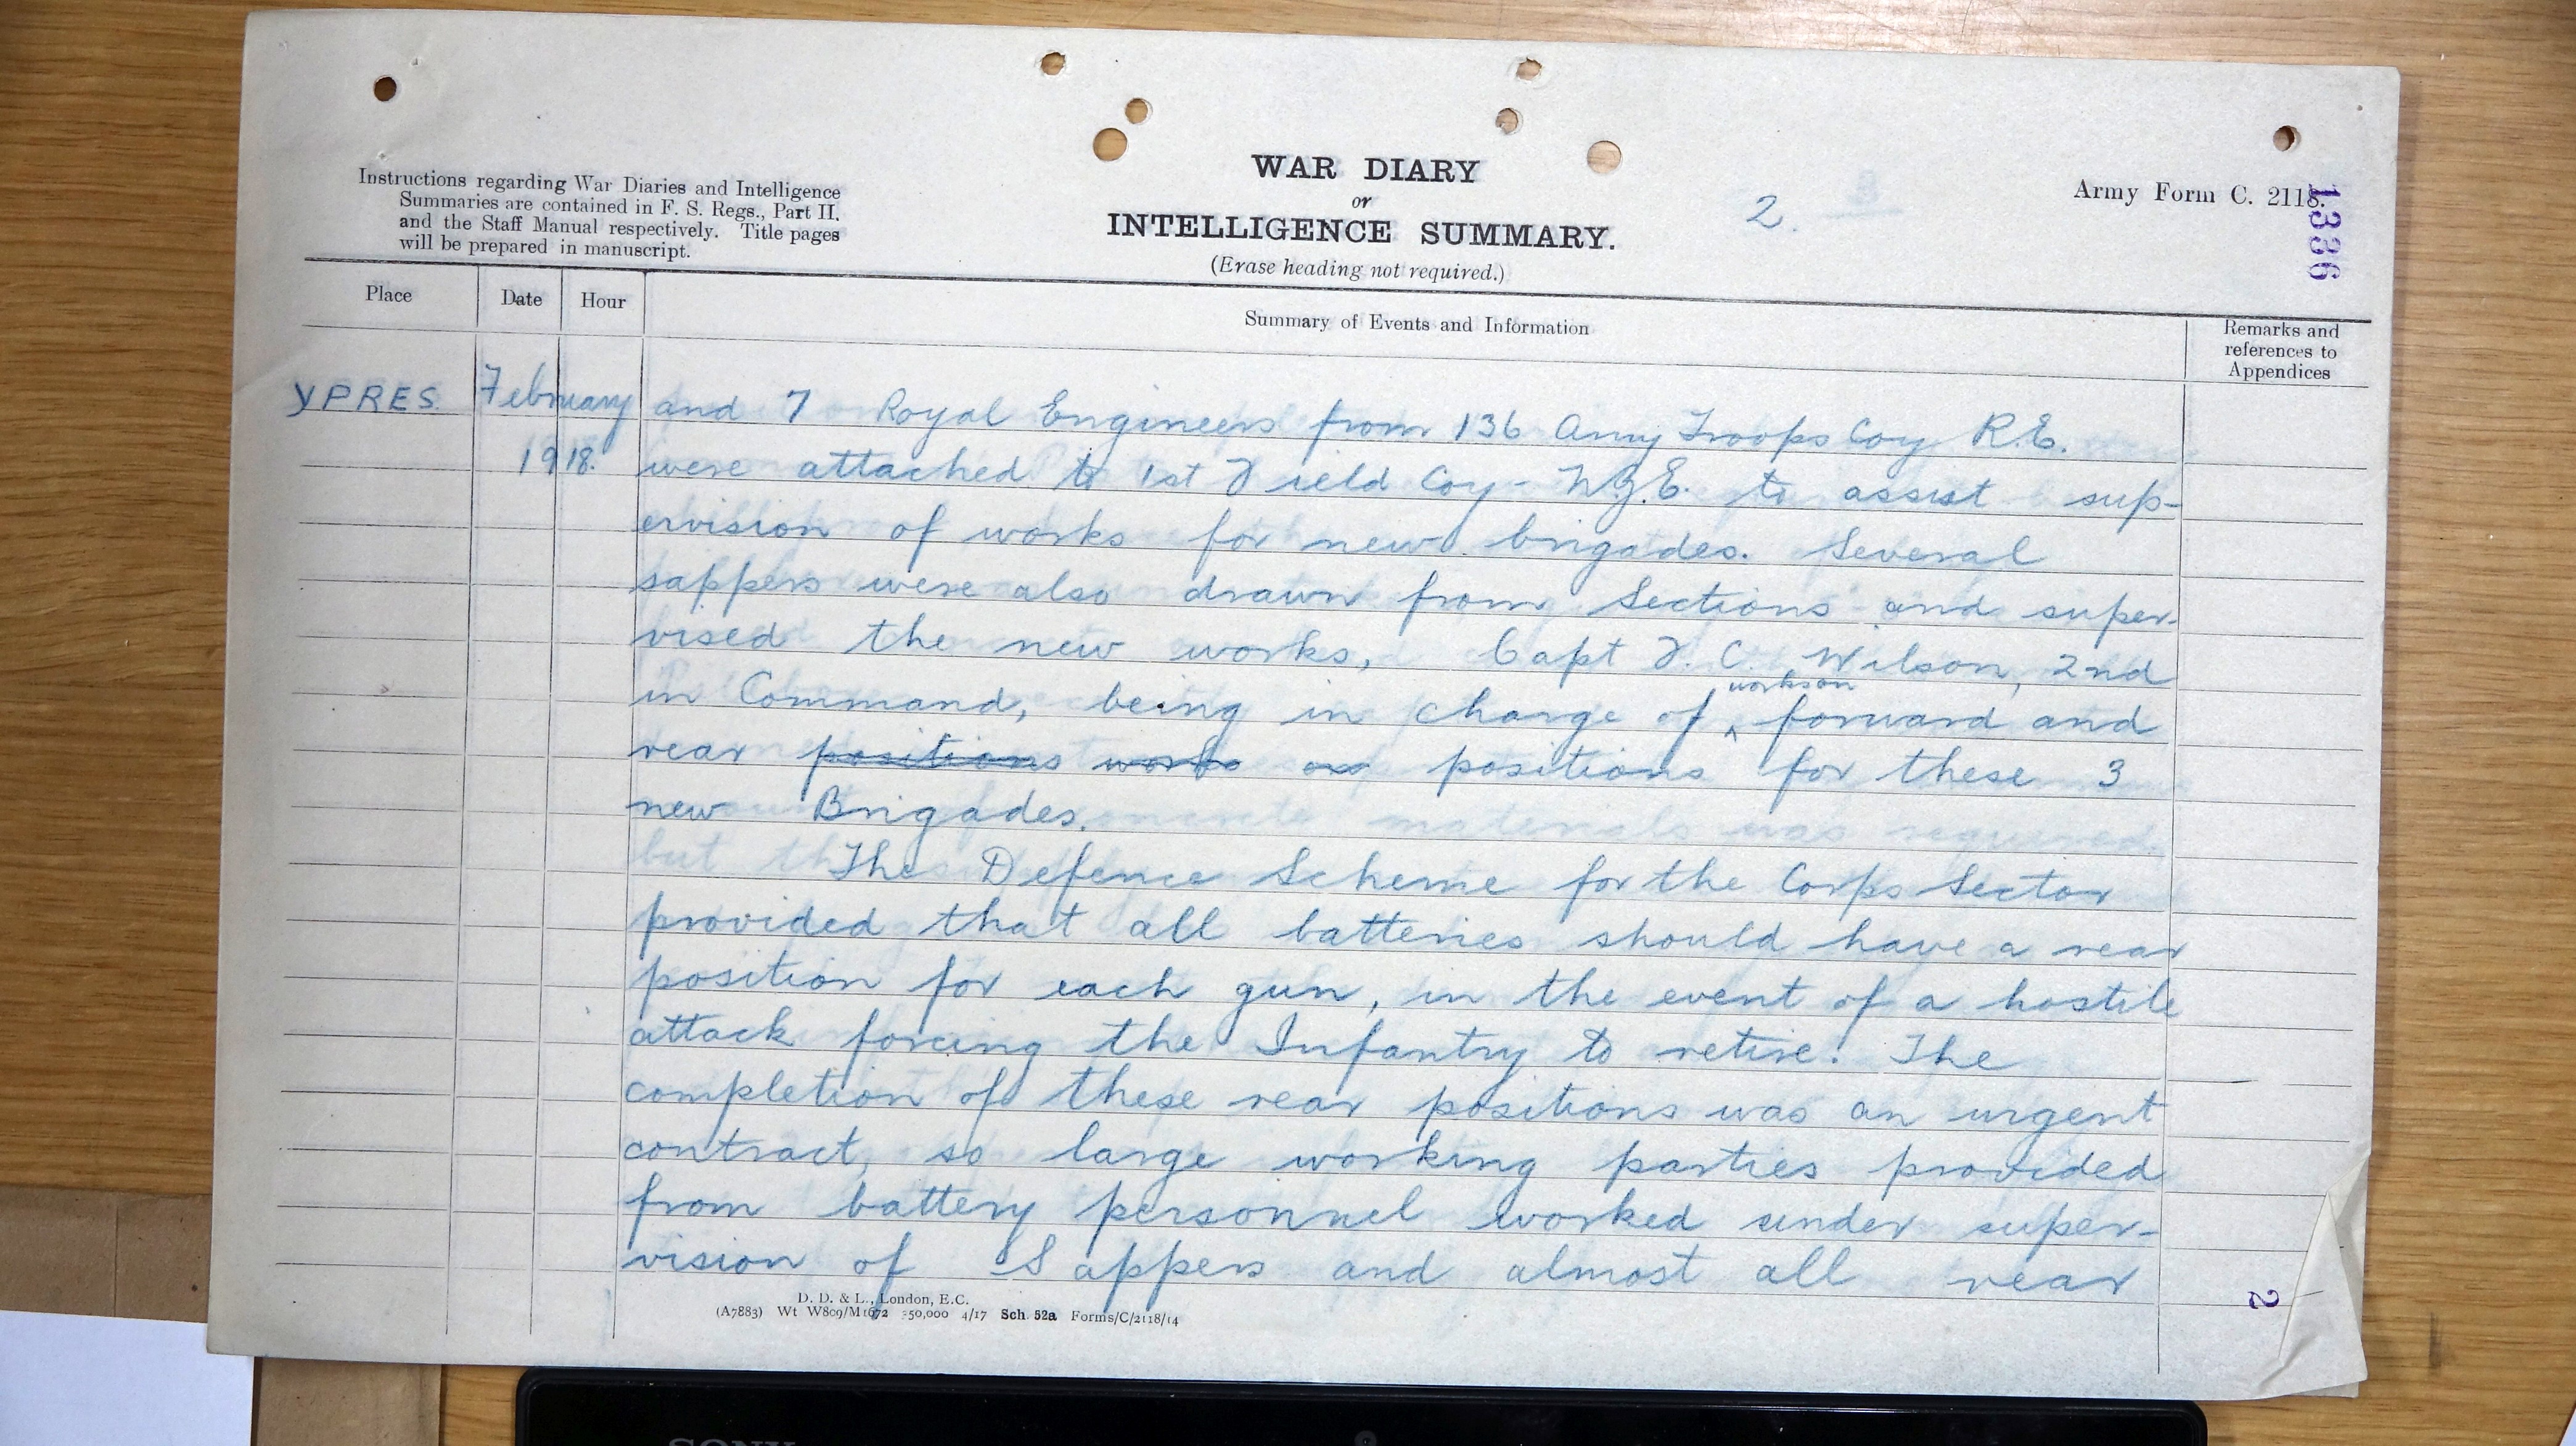 Instructions regarding War Diaries and Intelligence
Summaries are contained in F. S. Regs., Part II.
and the Staff Manual respectively. Title pages
will be prepared in manuscript.
WAR DIARY
or
INTELLIGENCE SUMMARY.
(Erase heading not required.)
2.
Army Form C. 2118.
1336
Place
Date
Hour
Summary of Events and Information
Remarks and
references to
Appendices
YPRES.
February
1918.
and 7 Royal Engineers from 136 Army Troops Coy R.E.
were attached to 1st Field Coy - N.Z.E. to assist sup-
ervision of works for new brigades. Several
sappers were also drawn from Sections and super-
vised the new works, Capt F. C. Wilson, 2nd
in Command, being in charge of works on forward and
rear positions works on positions for these 3
new Brigades.
The Defence Scheme for the Corps Sector
provided that all batteries should have a rear
position for each gun, in the event of a hostile
attack forcing the Infantry to retire. The
completion of these rear positions was an urgent
contract, so large working parties provided
from battery personnel worked under super-
vision of Sappers and almost all rear
D. D. & L., London, E.C.
(A7883) Wt W809/M1672 350,000 4/17 Sch. 52a Forms/C/2118/14
2
SONY